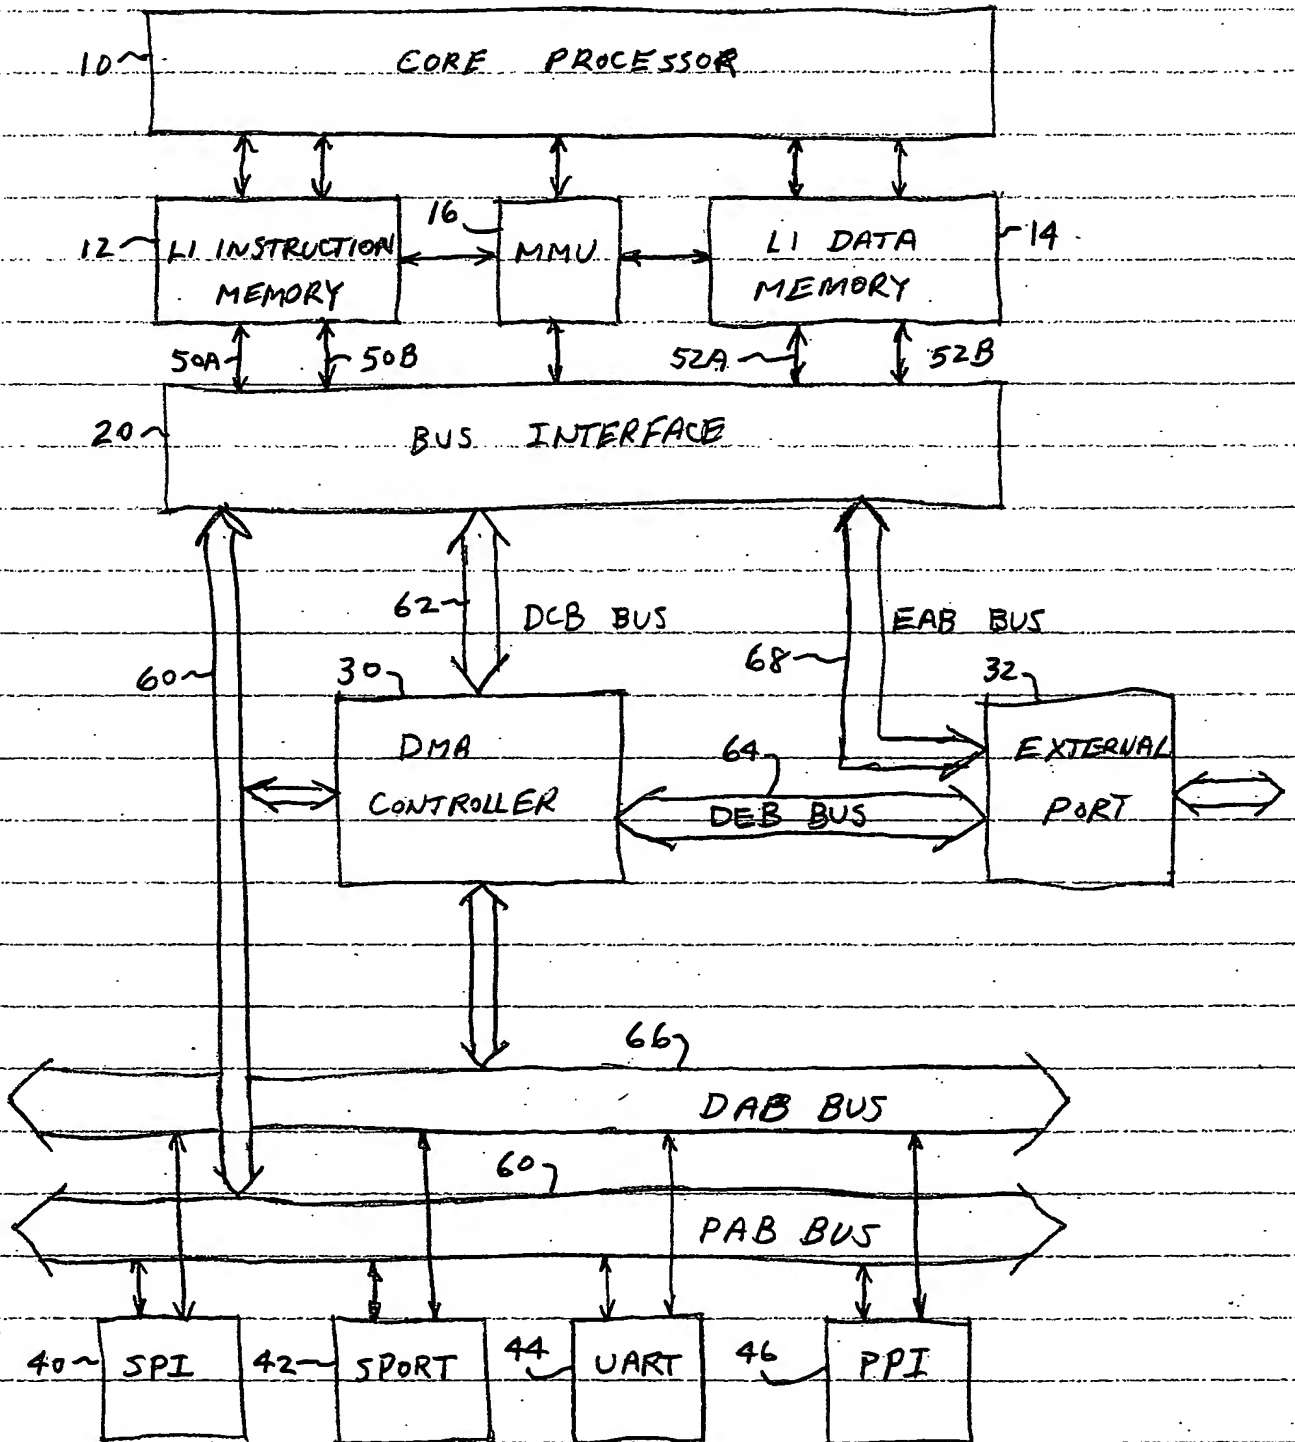 10 CORE PROCESSOR
16
12 L1 INSTRUCTION MEMORY
MMU
L1 DATA MEMORY
14
50A 50B 52A 52B
20 BUS INTERFACE
62 DCB BUS
EAB BUS
60
30
68
32
DMA CONTROLLER
64
DEB BUS
EXTERNAL PORT
66
DAB BUS
60
PAB BUS
40 SPI
42 SPORT
44 UART
46 PPI